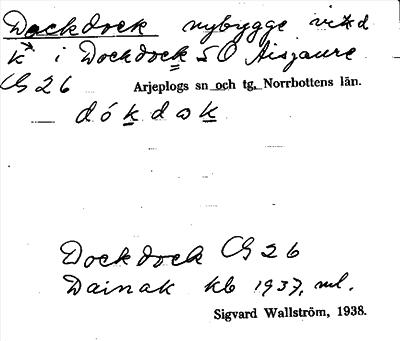 Dockdock nybygge vid
k i Dockdock SO Aisjaure
CG 26 Arjeplogs sn och tg, Norrbottens län.
dókdok
Dockdock CG 26
Dainak kb 1937, ml.
Sigvard Wallström, 1938.